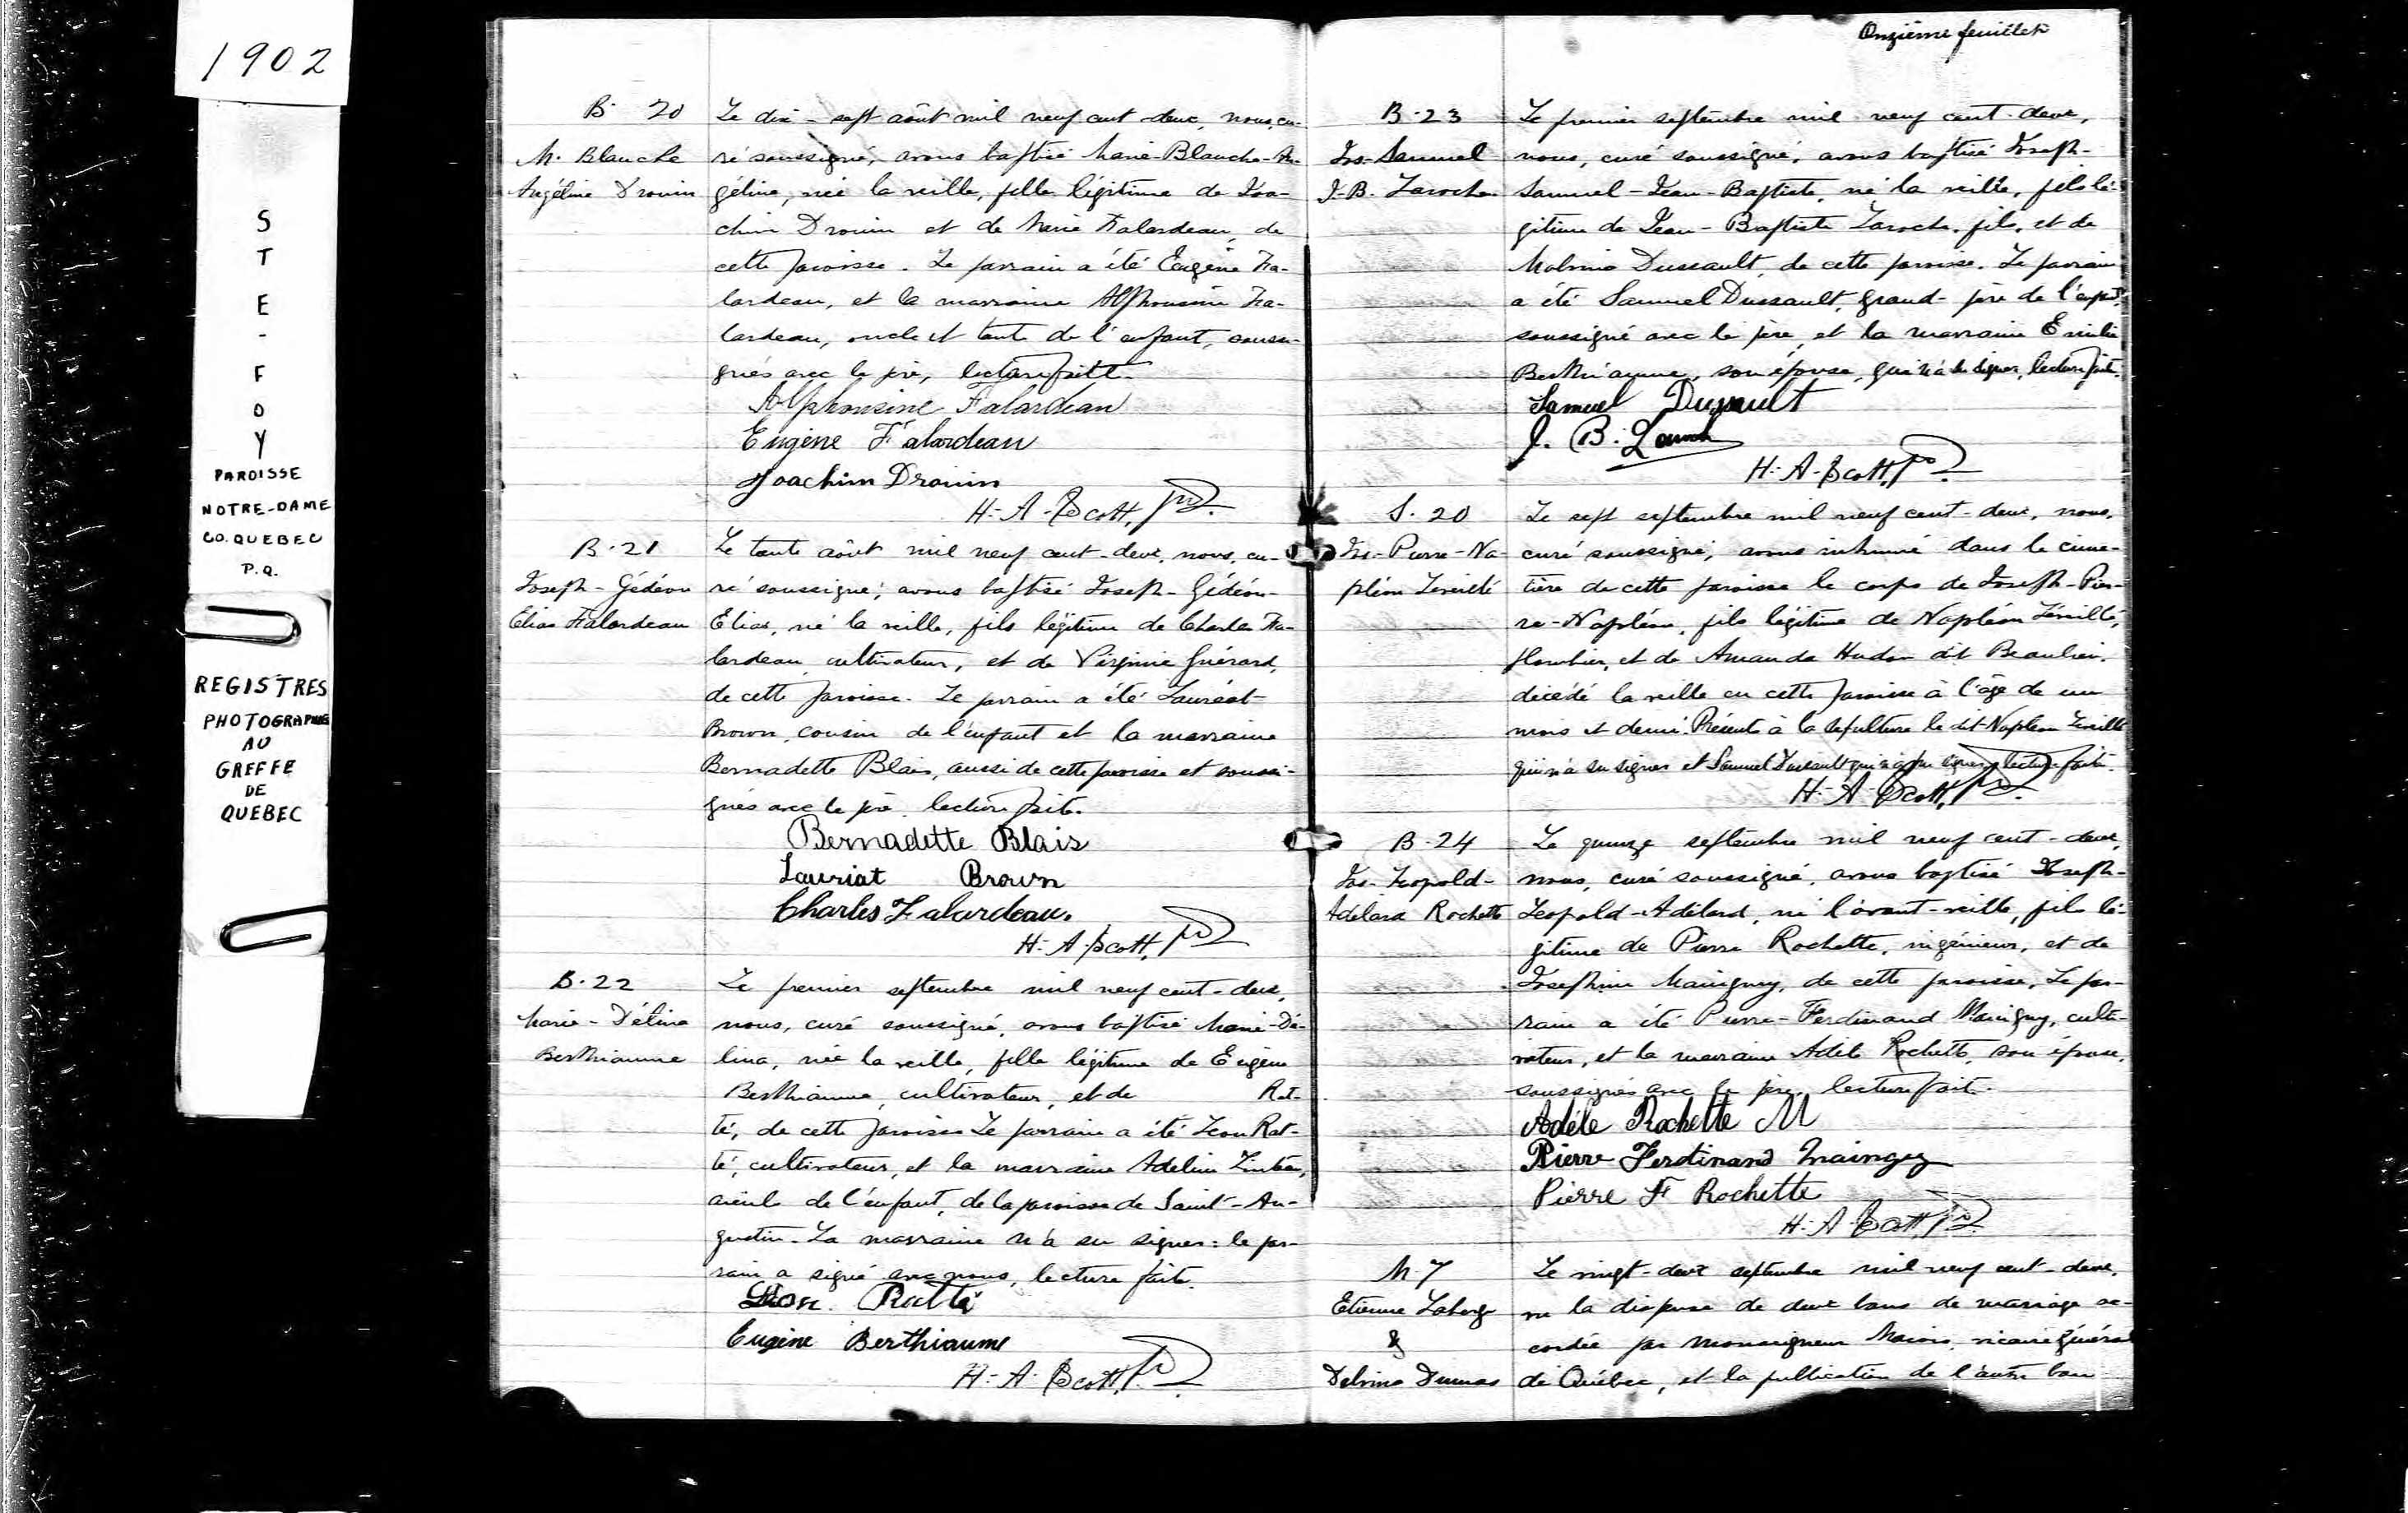 1902
S
T
E
-
F
O
Y
PAROISSE
NOTRE-DAME
CO. QUEBEC
P.Q.
REGISTRES
PHOTOGRAPHIES
AU
GREFFE
DE
QUEBEC
B. 20
M. Blanche
Angéline Drouin
Le dix-sept août mil neuf cent-deux, nous, cu-
ré soussigné, avons baptisé Marie-Blanche-An-
géline, née la veille, fille légitime de Joa-
chim Drouin et de Marie Falardeau, de
cette paroisse. Le parrain a été Eugène Fa-
lardeau, et la marraine Alphonsine Fa-
lardeau, oncle et tante de l'enfant, soussi-
gnés avec le père, lecture faite.
Alphonsine Falardeau
Eugène Falardeau
Joachim Drouin
H.-A. Scott, ptre
B. 21
Joseph-Gédéon
Elias Falardeau
Le trente août mil neuf cent-deux, nous, cu-
ré soussigné, avons baptisé Joseph-Gédéon-
Elias, né la veille, fils légitime de Charles Fa-
lardeau, cultivateur, et de Virginie Guérard,
de cette paroisse. Le parrain a été Lauréat
Brown, cousin de l'enfant et la marraine
Bernadette Blais, aussi de cette paroisse et soussi-
gnés avec le père, lecture faite.
Bernadette Blais
Lauriat Brown
Charles Falardeau.
H.-A. Scott, ptre
B. 22
Marie-Délina
Berthiaume
Le premier septembre mil neuf cent-deux,
nous, curé soussigné, avons baptisé Marie-Dé-
lina, née la veille, fille légitime de Eugène
Berthiaume, cultivateur, et de Rat-
té, de cette paroisse Le parrain a été Léon Rat-
té, cultivateur, et la marraine Adeline
aïeule de l'enfant, de la paroisse de Saint-Au-
gustin. La marraine n'a su signer: le par-
rain a signé avec nous, lecture faite.
Léon Ratté
Eugène Berthiaume
H.-A. Scott, ptre
Onzième feuillet
B. 23
Jos-Samuel
J.-B. Laroche
Le premier septembre mil neuf cent-deux,
nous, curé soussigné, avons baptisé Joseph-
Samuel-Jean-Baptiste, né la veille, fils lé-
gitime de Jean-Baptiste Laroche, fils, et de
Malvina Dussault, de cette paroisse. Le parrain
a été Samuel Dussault, grand-père de l'enfant,
soussigné avec le père, et la marraine Emilie
Berthiaume, son épouse, qui n'a su signer, lecture faite.
Samuel Dussault
J. B. Laroch
H.-A. Scott, ptre
S. 20
Jos-Pierre-Na-
pléon Léveillé
Le sept septembre mil neuf cent-deux, nous,
curé soussigné, avons inhumé dans le cime-
tière de cette paroisse le corps de Joseph-Pier-
re-Napléon, fils légitime de Napléon Léveillé,
plombier, et de Amanda Hudon dit Beaulieu,
décédé la veille en cette paroisse à l'âge de un
mois et demi. Présents à la sépulture le dit Napléon Léveillé
qui n'a su signer et Samuel Dussault qui n'a pu signer, lecture faite.
H.-A. Scott, ptre
B. 24
Jos-Léopold-
Adélard Rochette
Le quinze septembre mil neuf cent-deux,
nous, curé soussigné, avons baptisé Joseph-
Léopold-Adélard, né l'avant-veille, fils lé-
gitime de Pierre Rochette, ingénieur, et de
Joséphine Mainguy, de cette paroisse. Le par-
rain a été Pierre-Ferdinand Mainguy, culti-
vateur, et la marraine Adèle Rochette, son épouse,
soussignés avec le père, lecture faite.
Adèle Rochette M
Pierre Ferdinand Maingeg
Pierre F Rochette
H.-A. Scott, ptre
M. 7
Etienne Laberge
&
Delvina Dumas
Le vingt-deux septembre mil neuf cent-deux,
vu la dispense de deux bans de mariage ac-
cordée par Monseigneur Marois, vicaire général
de Québec, et la publication de l'autre ban